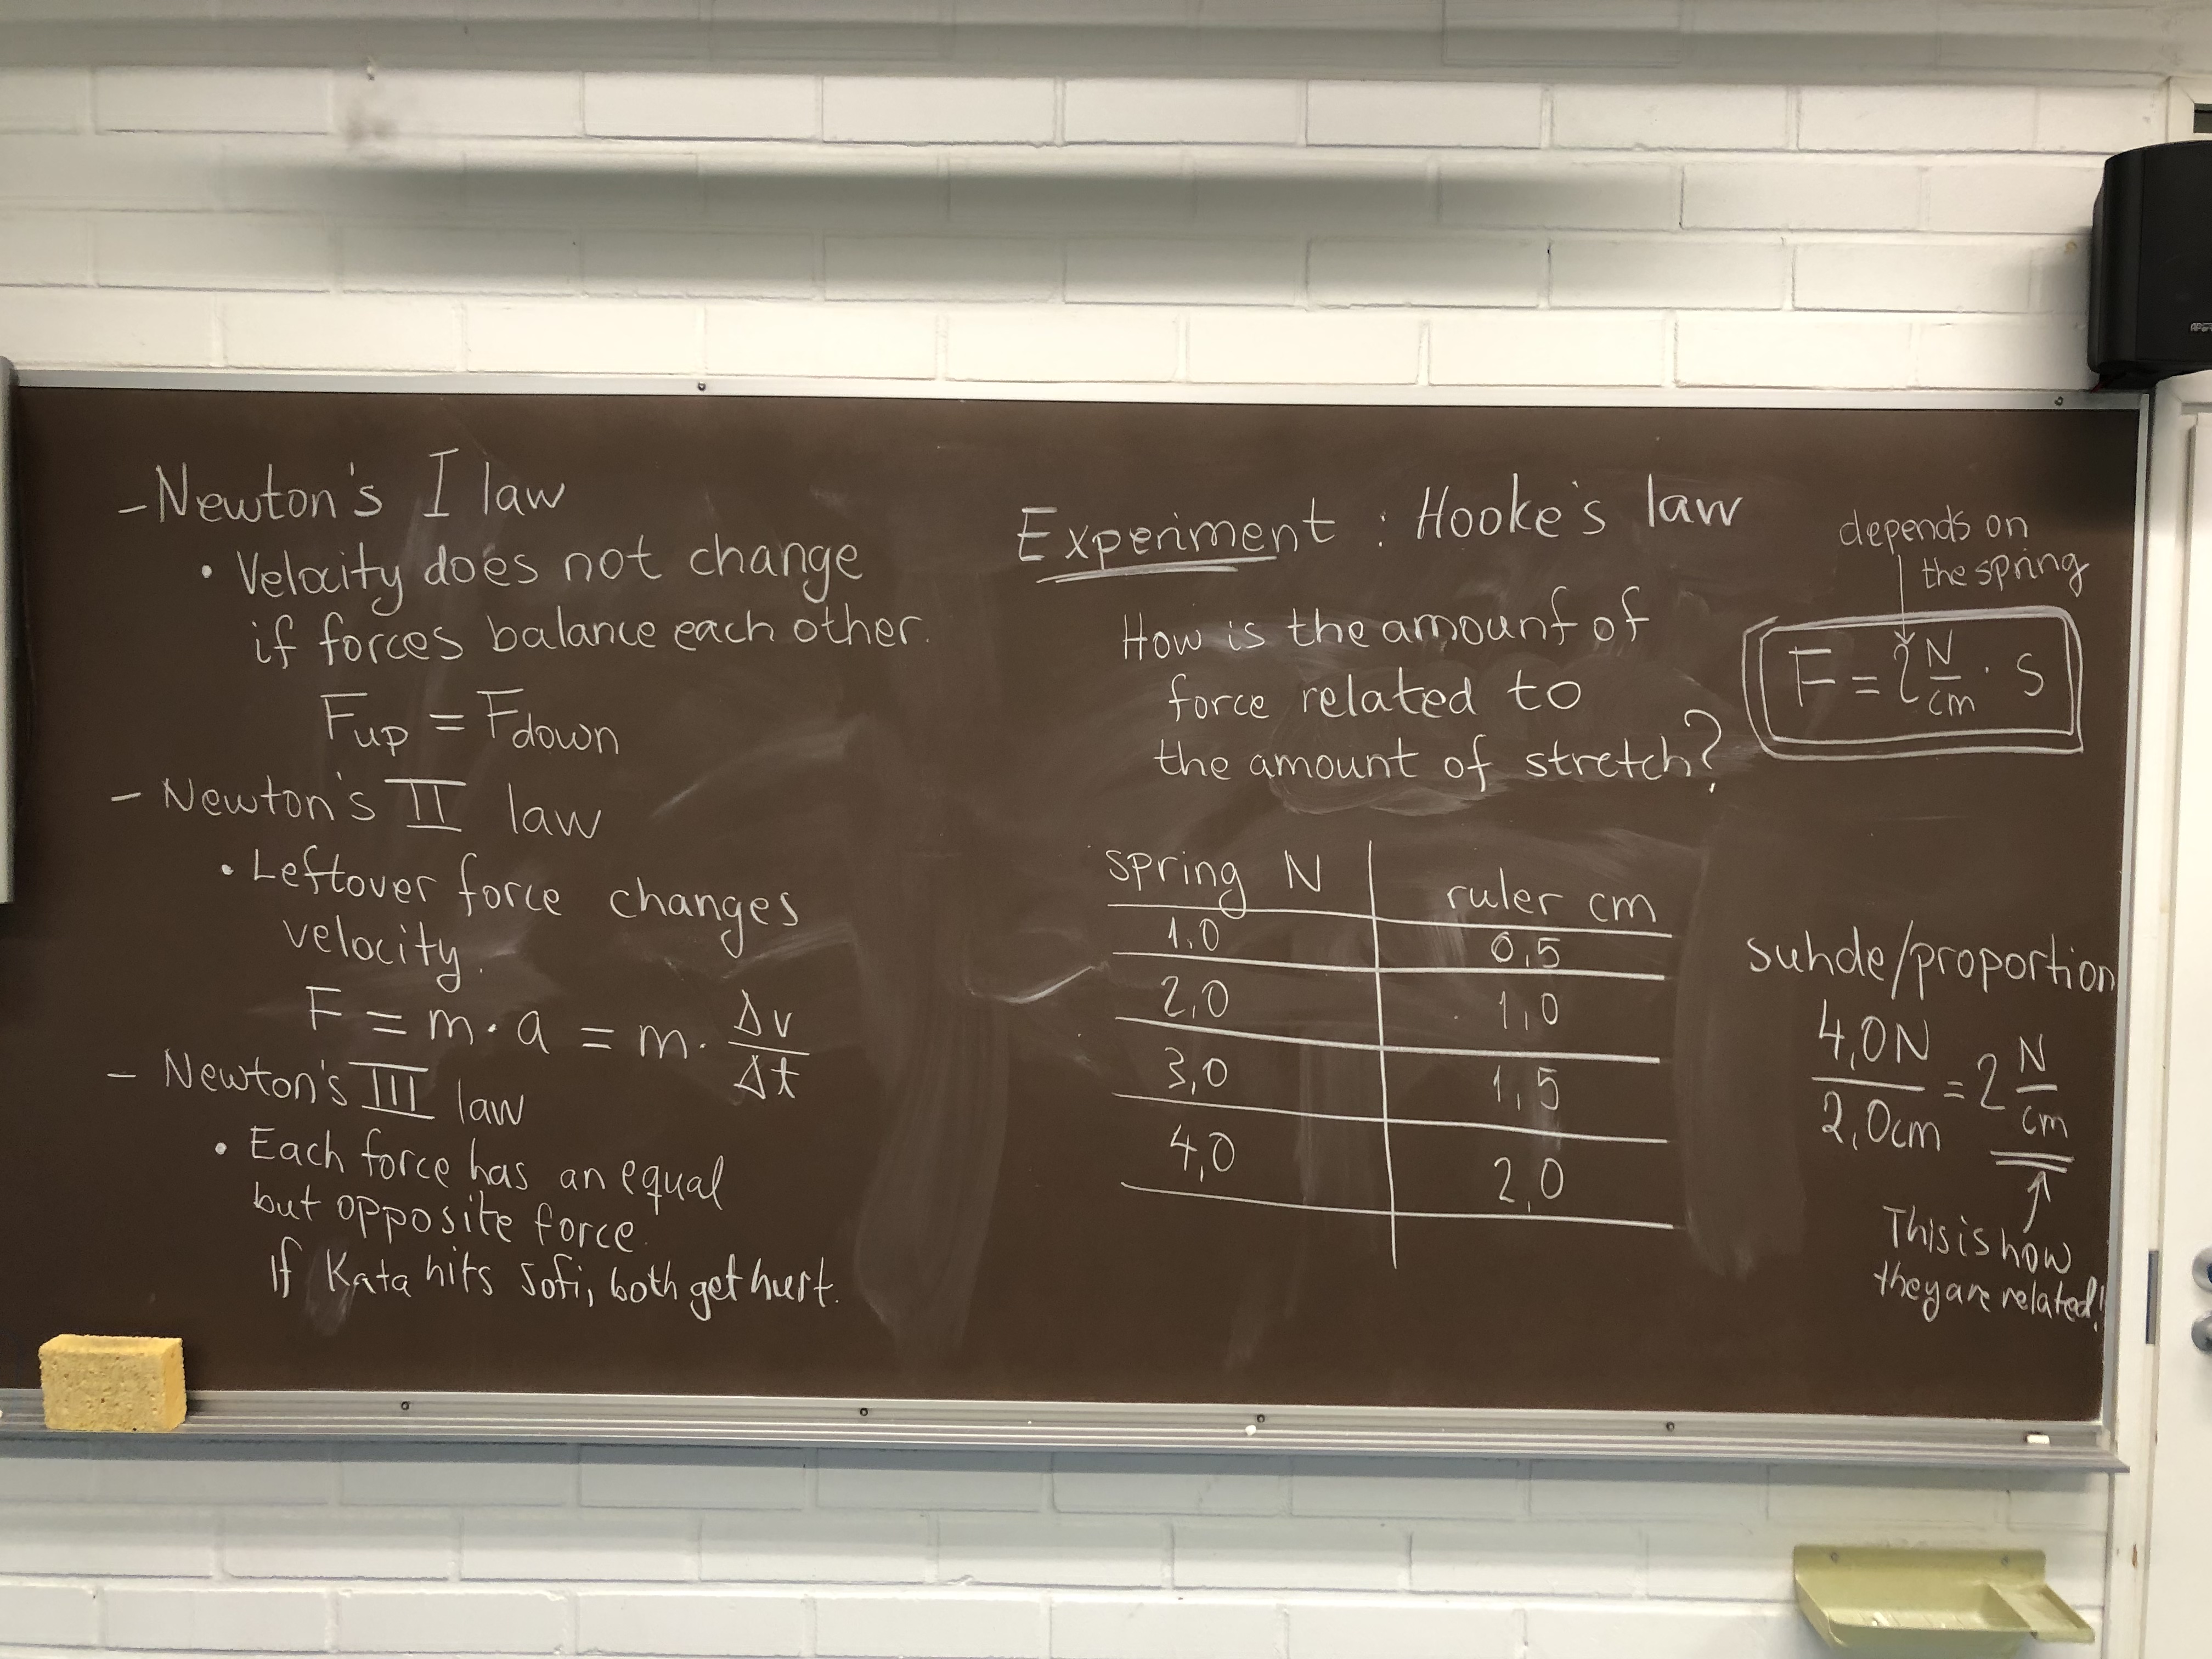 – Newton's I law
• Velocity does not change
if forces balance each other.
Fup = Fdown
– Newton's II law
• Leftover force changes
velocity.
F = m · a = m · Δv/Δt
– Newton's III law
• Each force has an equal
but opposite force.
If Kata hits Sofi, both get hurt.
Experiment : Hooke's law
How is the amount of
force related to
the amount of stretch?
spring N | ruler cm
1,0 | 0,5
2,0 | 1,0
3,0 | 1,5
4,0 | 2,0
depends on
the spring
F = 2 N/cm · s
suhde/proportion
4,0N/2,0cm = 2 N/cm
This is how
they are related!